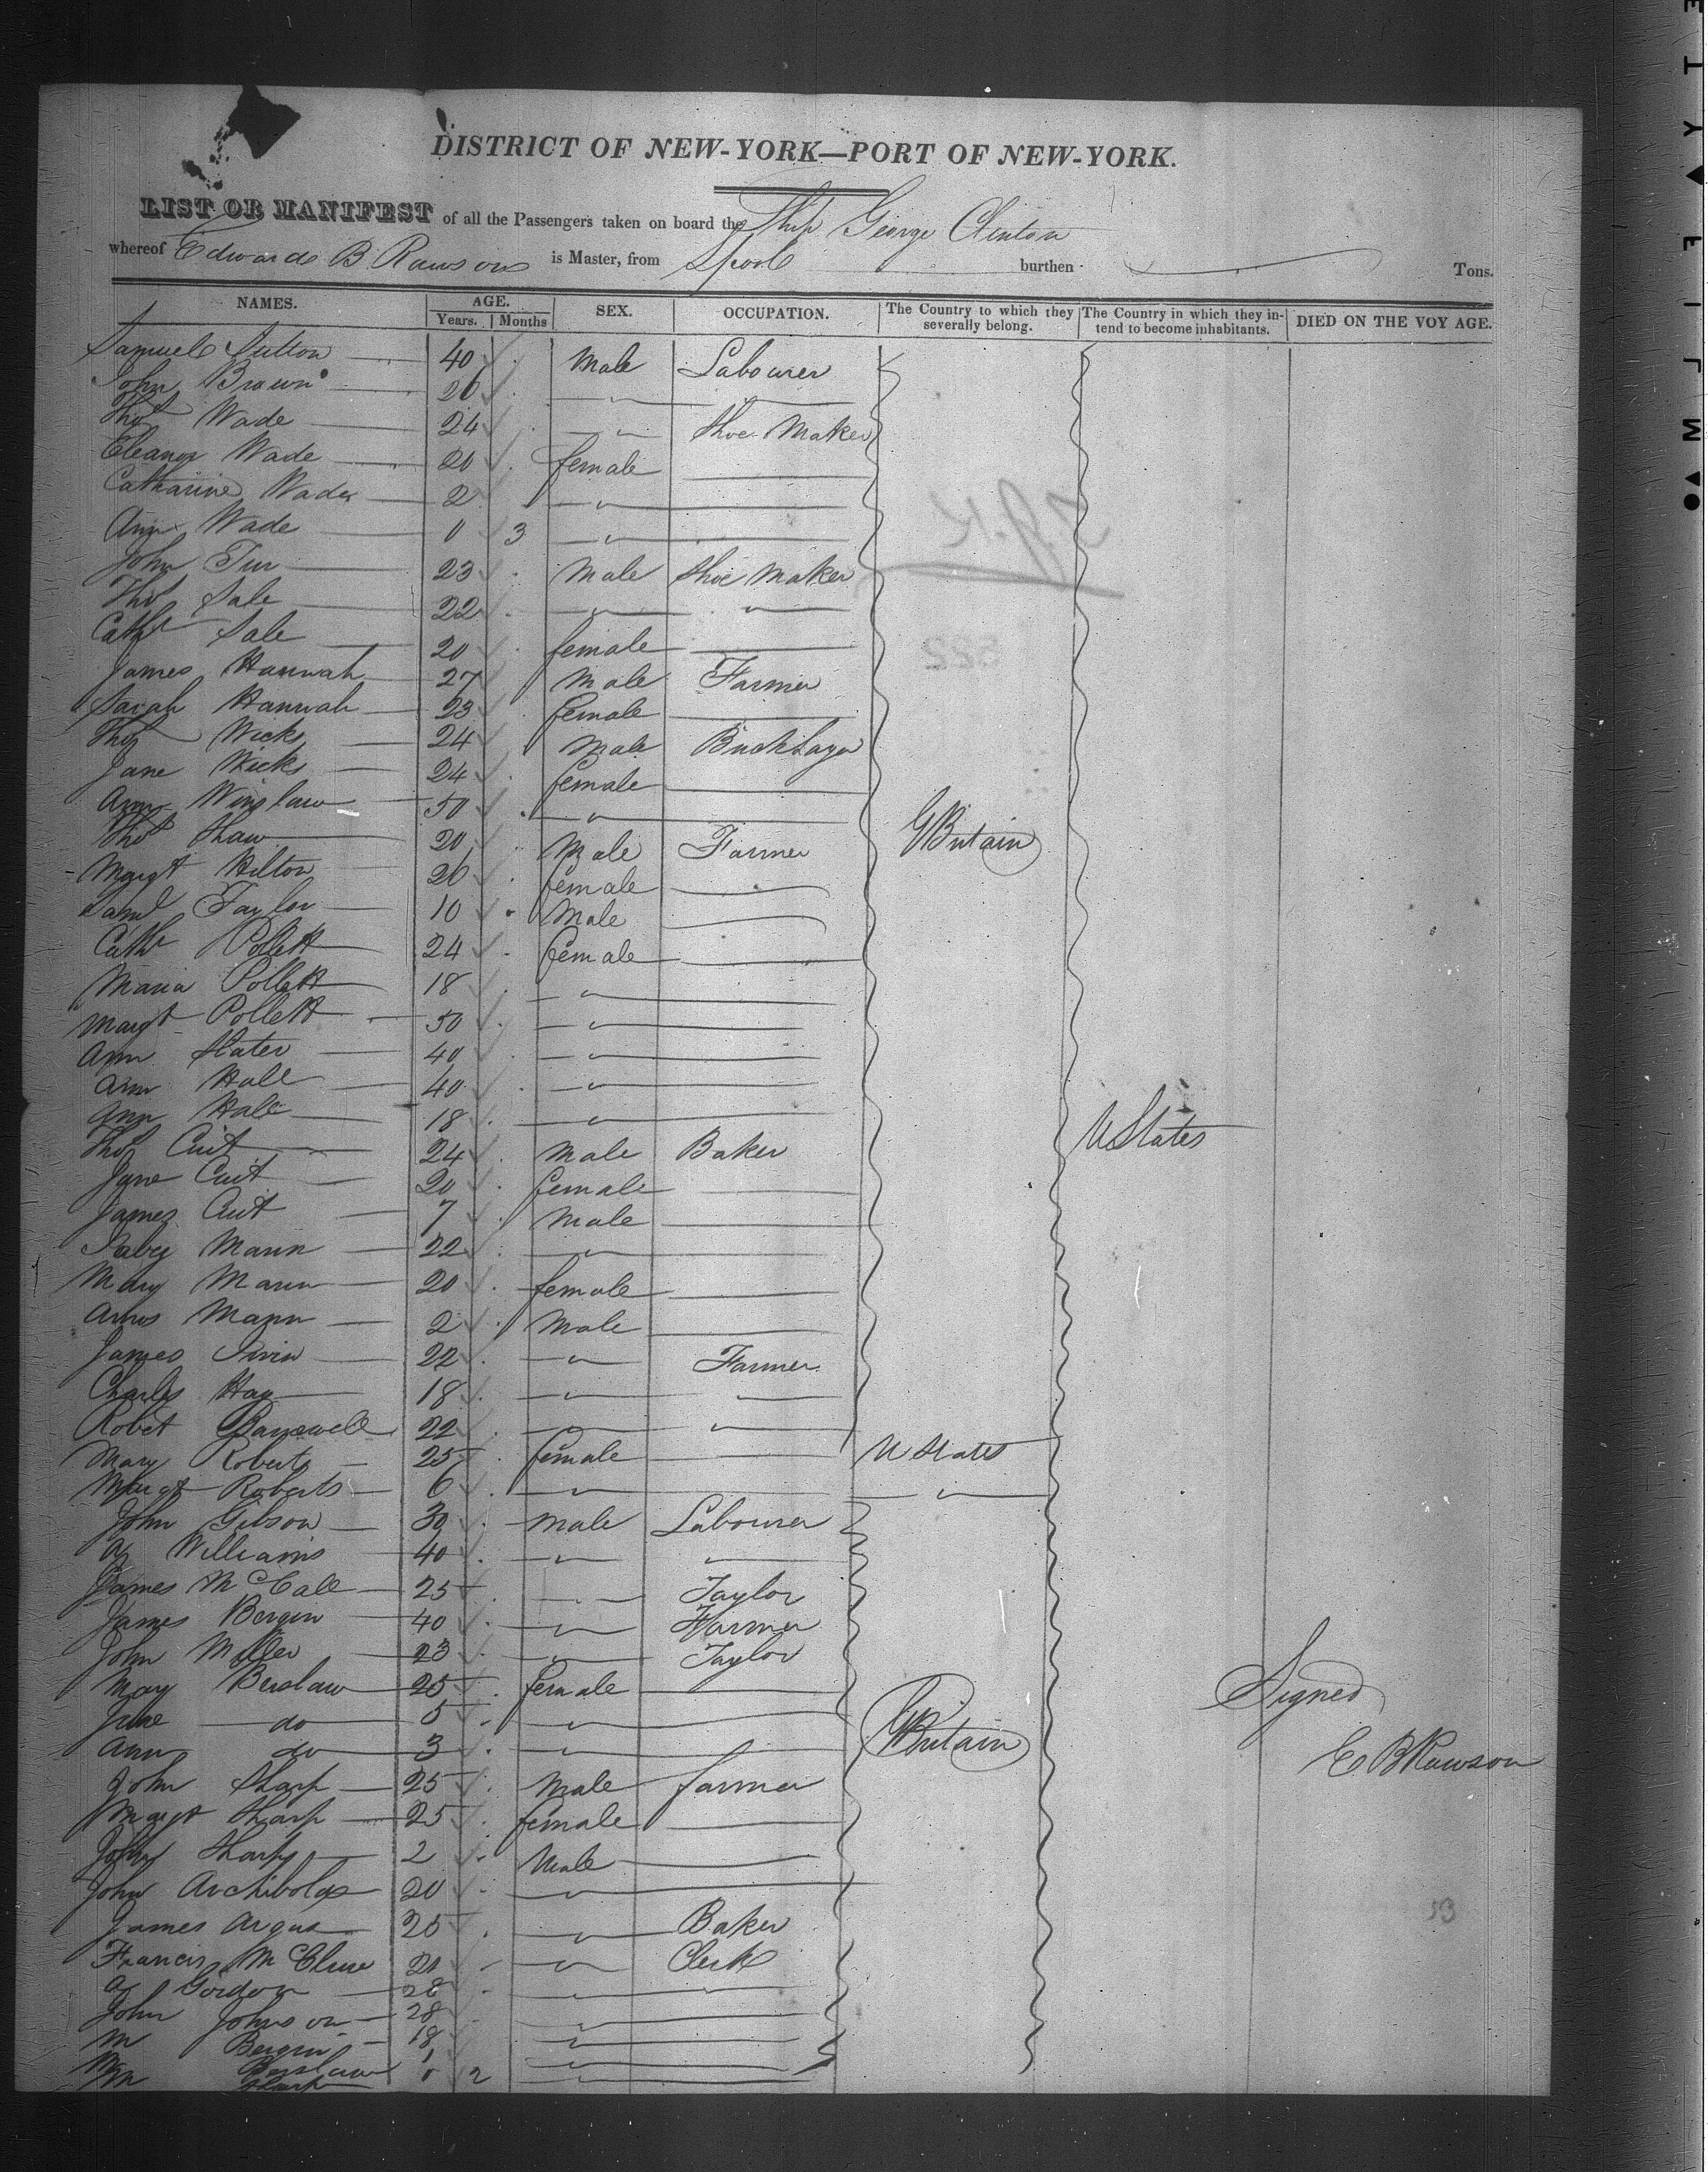 DISTRICT OF NEW-YORK—PORT OF NEW-YORK.
LIST OR MANIFEST of all the Passengers taken on board the Ship George Clinton
whereof Edwards B Rawson is Master, from Lpool burthen Tons.
NAMES. AGE. SEX. OCCUPATION. The Country to which they severally belong. The Country in which they intend to become inhabitants. DIED ON THE VOYAGE.
Years. Months
Samuel Sutton 40 Male Labourer
John Brown 26 " "
Thos Wade 24 " Shoe Maker
Eleanor Wade 20 female
Catharine Wade 2 "
Ann Wade 0 3 "
John 23 Male Shoe Maker
Thos Sale 22 " "
Cathe Sale 20 female
James Hannah 27 Male Farmer
Sarah Hannah 23 female
Thos Wicks 24 Male Brick Layer
Jane Wicks 24 female
Ann Winslaw 50 "
Thos Shaw 20 Male Farmer GBritain
Margt Hilton 26 female
Saml Taylor 10 Male
Cath Pollett 24 female
Maria Pollett 18 "
Margt Pollett 50 "
Ann Slater 40 "
Ann Hall 40 "
Ann Hall 18 "
Thos Cuit 24 Male Baker U States
Jane Cuit 20 female
James Cuit 7 Male
Mann 22 "
Mary Mann 20 female
Amos Mann 2 Male
James 22 " Farmer
Charles Hay 18 " "
Robet 22 " "
Mary Roberts 25 female U States
Margt Roberts 6 " "
John Gibson 30 Male Labourer
Williams 40 " "
James McCall 25 " Taylor
James Bergin 40 " Farmer
John Miller 23 " Taylor
Mary Berslaw 25 female Signed
Jane do 5 " GBritain
Ann do 3 " E B Rawson
John Sharp 25 Male farmer
Margt Sharp 25 female
John Sharp 2 Male
John Archibold 20 "
James Argus 25 " Baker
Francis McClure 21 " Clerk
Gordon 28 " "
John Johnson 28 "
M Bergin 18 "
Berslaw 1 "
Sharp 0 2 "